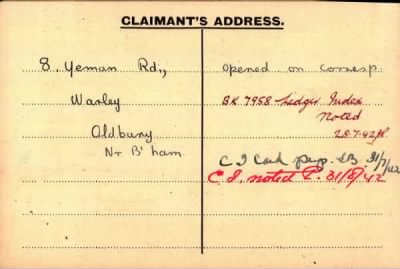 CLAIMANT'S ADDRESS.
8, Yeman Rd.,
Warley
Oldbury
Nr B'ham.
Opened on corresp.
BK 7958 Ledger Index
Noted
28.7.42
C I Card prep. 31/7/42
C.I. noted P. 31/8/42